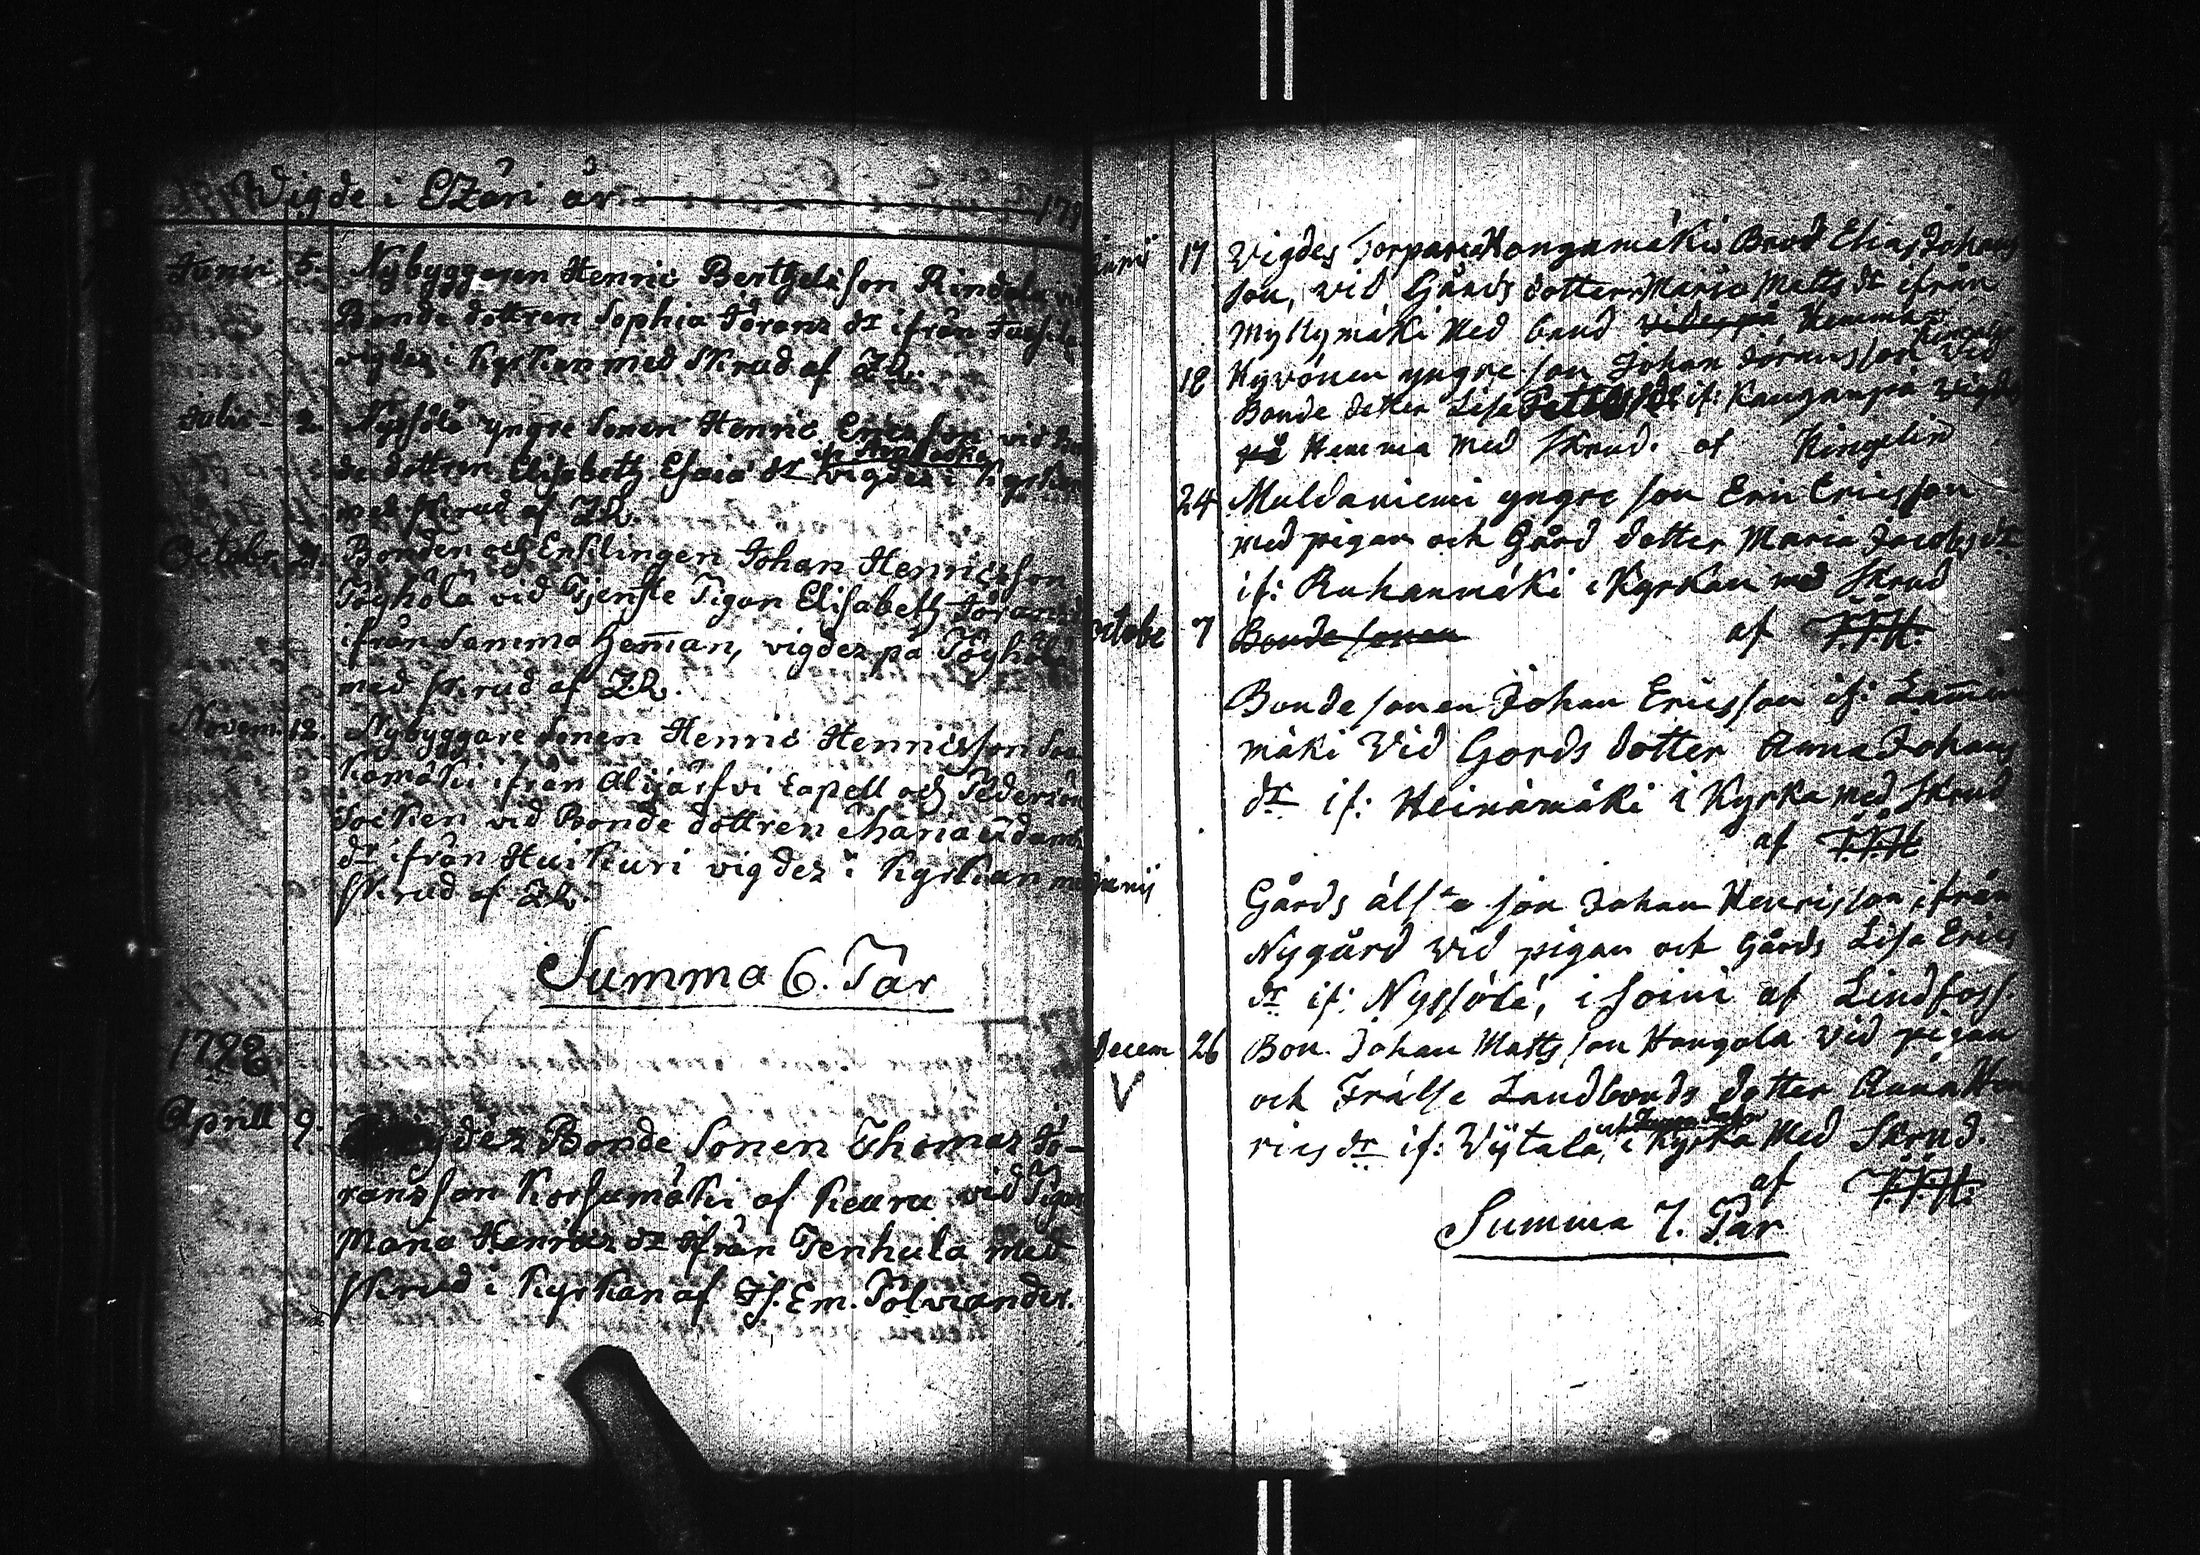 Wigde i Etzäri år 179
Junii 5. Nybyggaren Henric Berthelsson Rindola
Bonde dottren Sophia Jörans dr ifrån
vigdes i Kyrkan med Skrud af
Julii 2. Nyssölä yngre Sonen Henric Ericsson vid
de dottren Elisabeth Esaiæ dr vigdes i Kyrkan
med Skrud af
Octobr. 21. Bonden och Enklingen Johan Henricsson
Töyhölä vid Tjenste Pigan Elisabeth Jörans
ifrån Samma Heman, vigdes på Töyhölä
med Skrud af
Novem. 12. Nybyggare Sonen Henric Henricsson
ifrån Alijärfvi Capell och Pedersöre
Socken vid Bonde dottren Maria Adams
dr ifrån Huikuri vigdes i Kyrkan med
Skrud af
Summa 6. Par
1798
Aprill 9. Bonde Sonen Thomas Jö-
ransson Korsumäki af Keuru vid Pigan
Maria Henrics dr ifrån Tenhula med
Skrud i Kyrkan af Is. Em. Polviander.
Junij 17 Vigdes Torpare Hongamäki Brod Elias Johans
son, vid Gårds dotter Maria Matts dr ifrån
Myllymäki Med band Hemma
Hingelin
18 Hyvönen yngre son Johan Jöransson vid
Bonde dotter Lisa if: Kanganpä Vigdes
på Hemma Med Skrud. af Hingelin
24 Muldaniemi yngre son Eric Ericsson
med pigan och Gård dotter Maria Jacobs dr
if: Ruhanmäki i Kyrkan med Skrud
af J.J.H.
Octobe 7 Bonde sonen
Bonde sonen Johan Ericsson if: Lamin
mäki Vid Gords dotter Anna Johans
dr if: Heinämäki i Kyrka med Skrud
af J.J.H
Junij Gårds älsta son Johan Henrisson ifrån
Nygård Vid pigan och Gårds Lisa Erics
dr if: Nyssölä, i Soini af Lindfoss.
Decem 26 Bon. Johan Matts son Hangola vid pigan
V
och Frälse Landbonds dotter Anna Hen
rics dr if: Vÿtala, i Kyrka Med Skrud.
af J.J.H.
Summa 7. Par